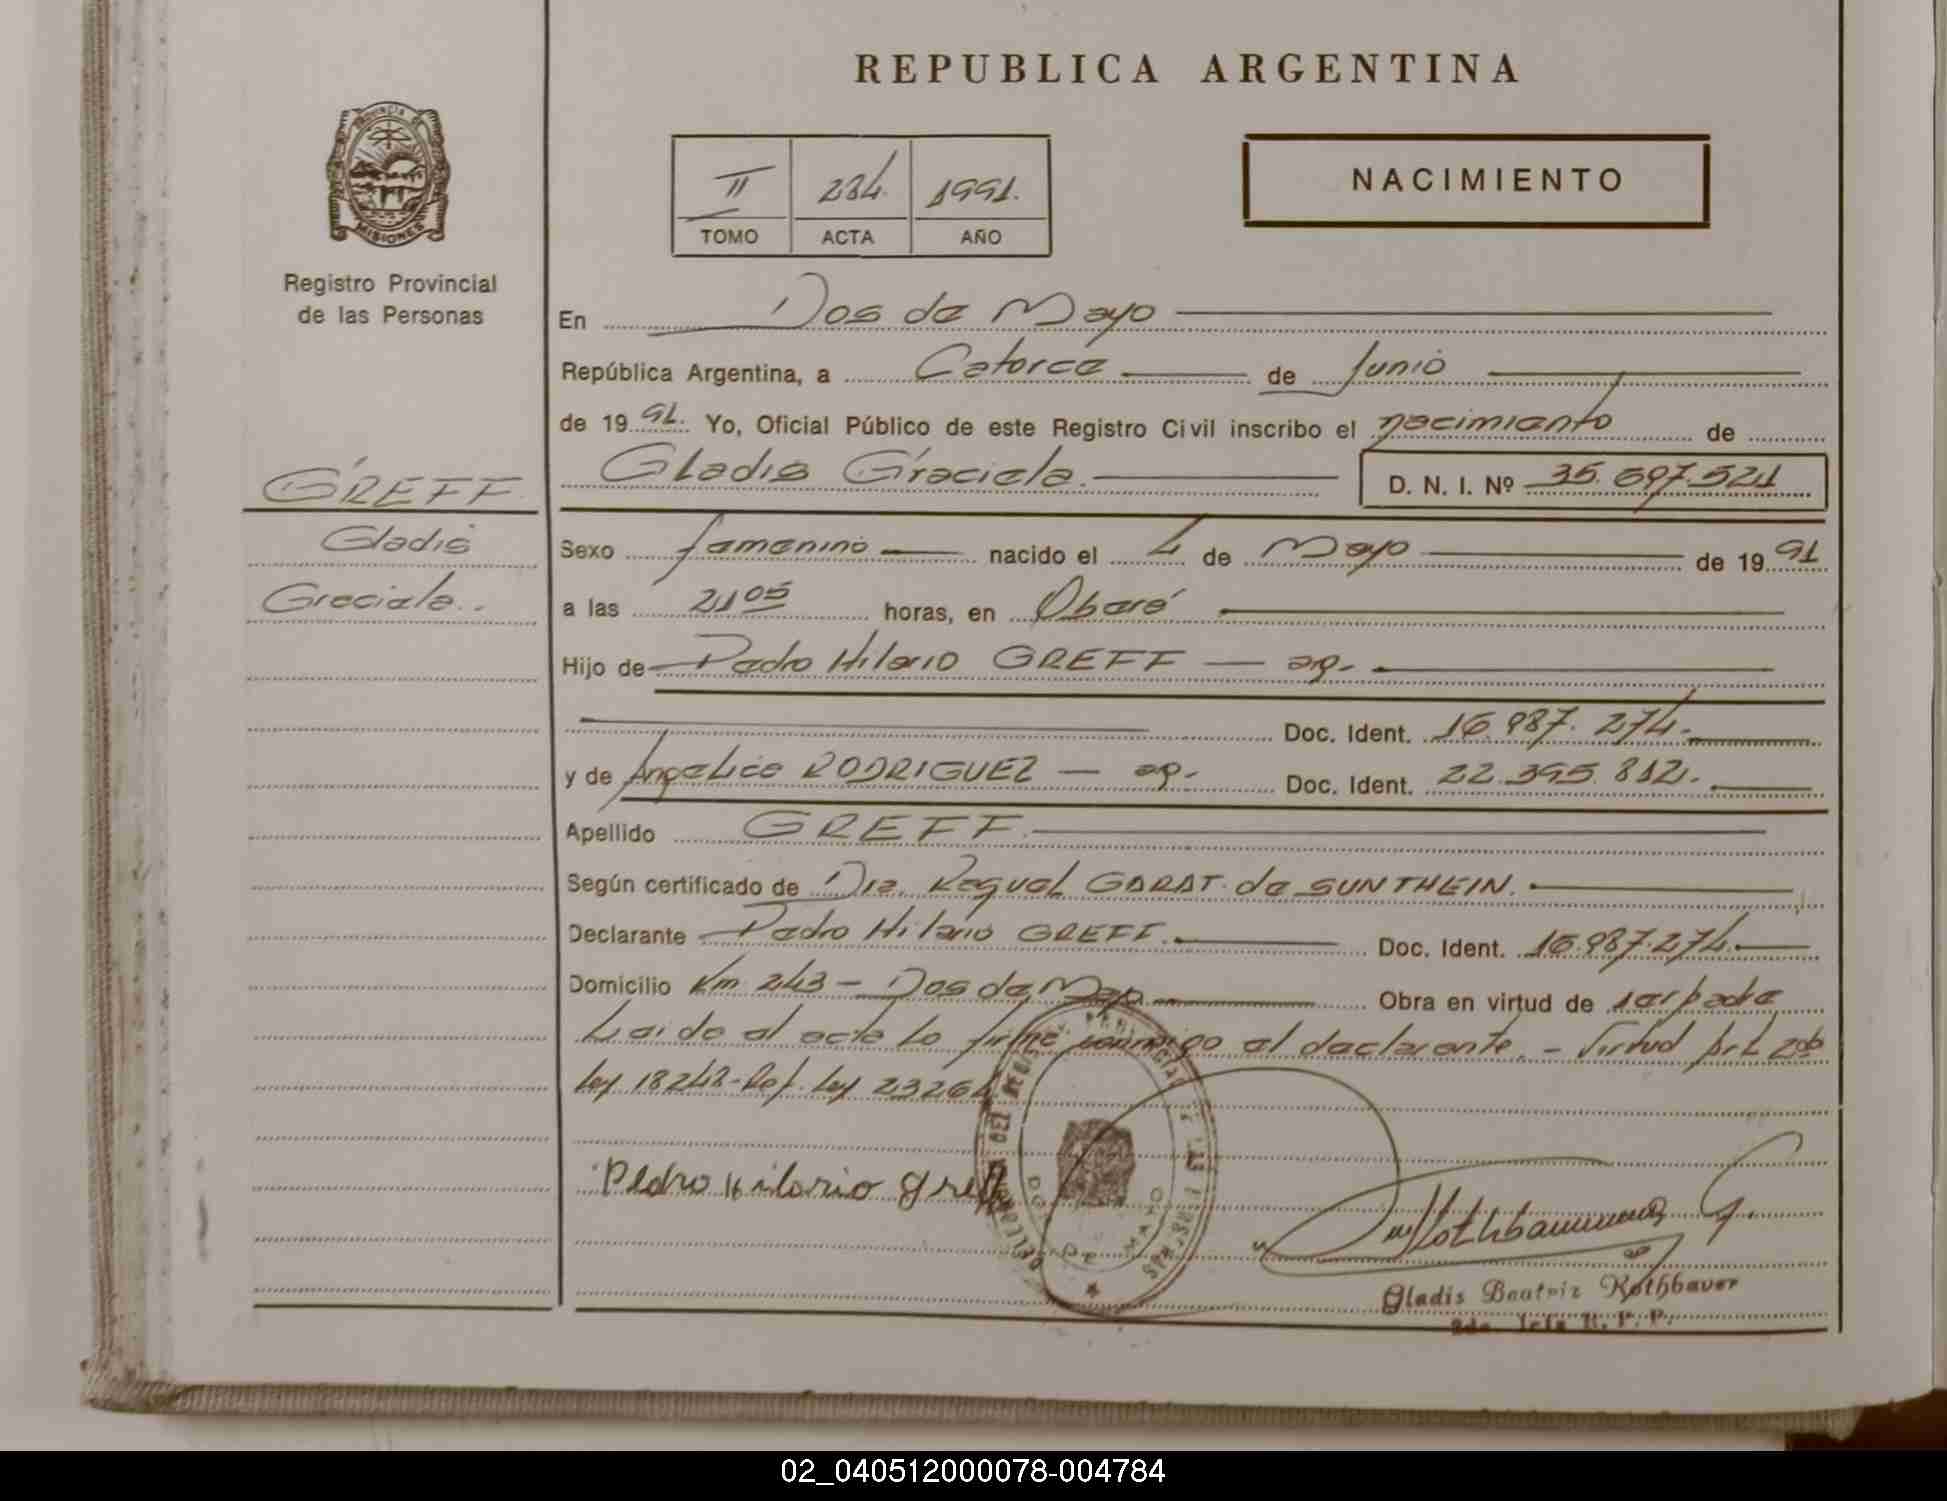 REPUBLICA ARGENTINA
PROVINCIA DE
MISIONES
Registro Provincial
de las Personas
II 234. 1991.
TOMO ACTA AÑO
NACIMIENTO
En Dos de Mayo
República Argentina, a Catorce de Junio
de 1991. Yo, Oficial Público de este Registro Civil inscribo el nacimiento de
Gladis Graciela. D. N. I. Nº 35.697.521
GREFF
Gladis
Graciela..
Sexo femenino nacido el 4 de Mayo de 1991
a las 21 05 horas, en Oberá
Hijo de Pedro Hilario GREFF — ag.
Doc. Ident. 16.987.274.
y de Angelica RODRIGUEZ — ag. Doc. Ident. 22.395.812.
Apellido GREFF.
Según certificado de Dra. Raquel GARAT de SUNTHEIN.
Declarante Pedro Hilario GREFF. Doc. Ident. 16.987.274.
Domicilio Km 243 — Dos de Mayo Obra en virtud de ser padre
Leido el acta lo firma conmigo el declarante. — Virtud Art. 2do
ley 18248-Ref. ley 23264
Pedro Hilario greff
DOS DE MAYO
Gladis Beatriz Rothbauer
R. P. P.
02_040512000078-004784